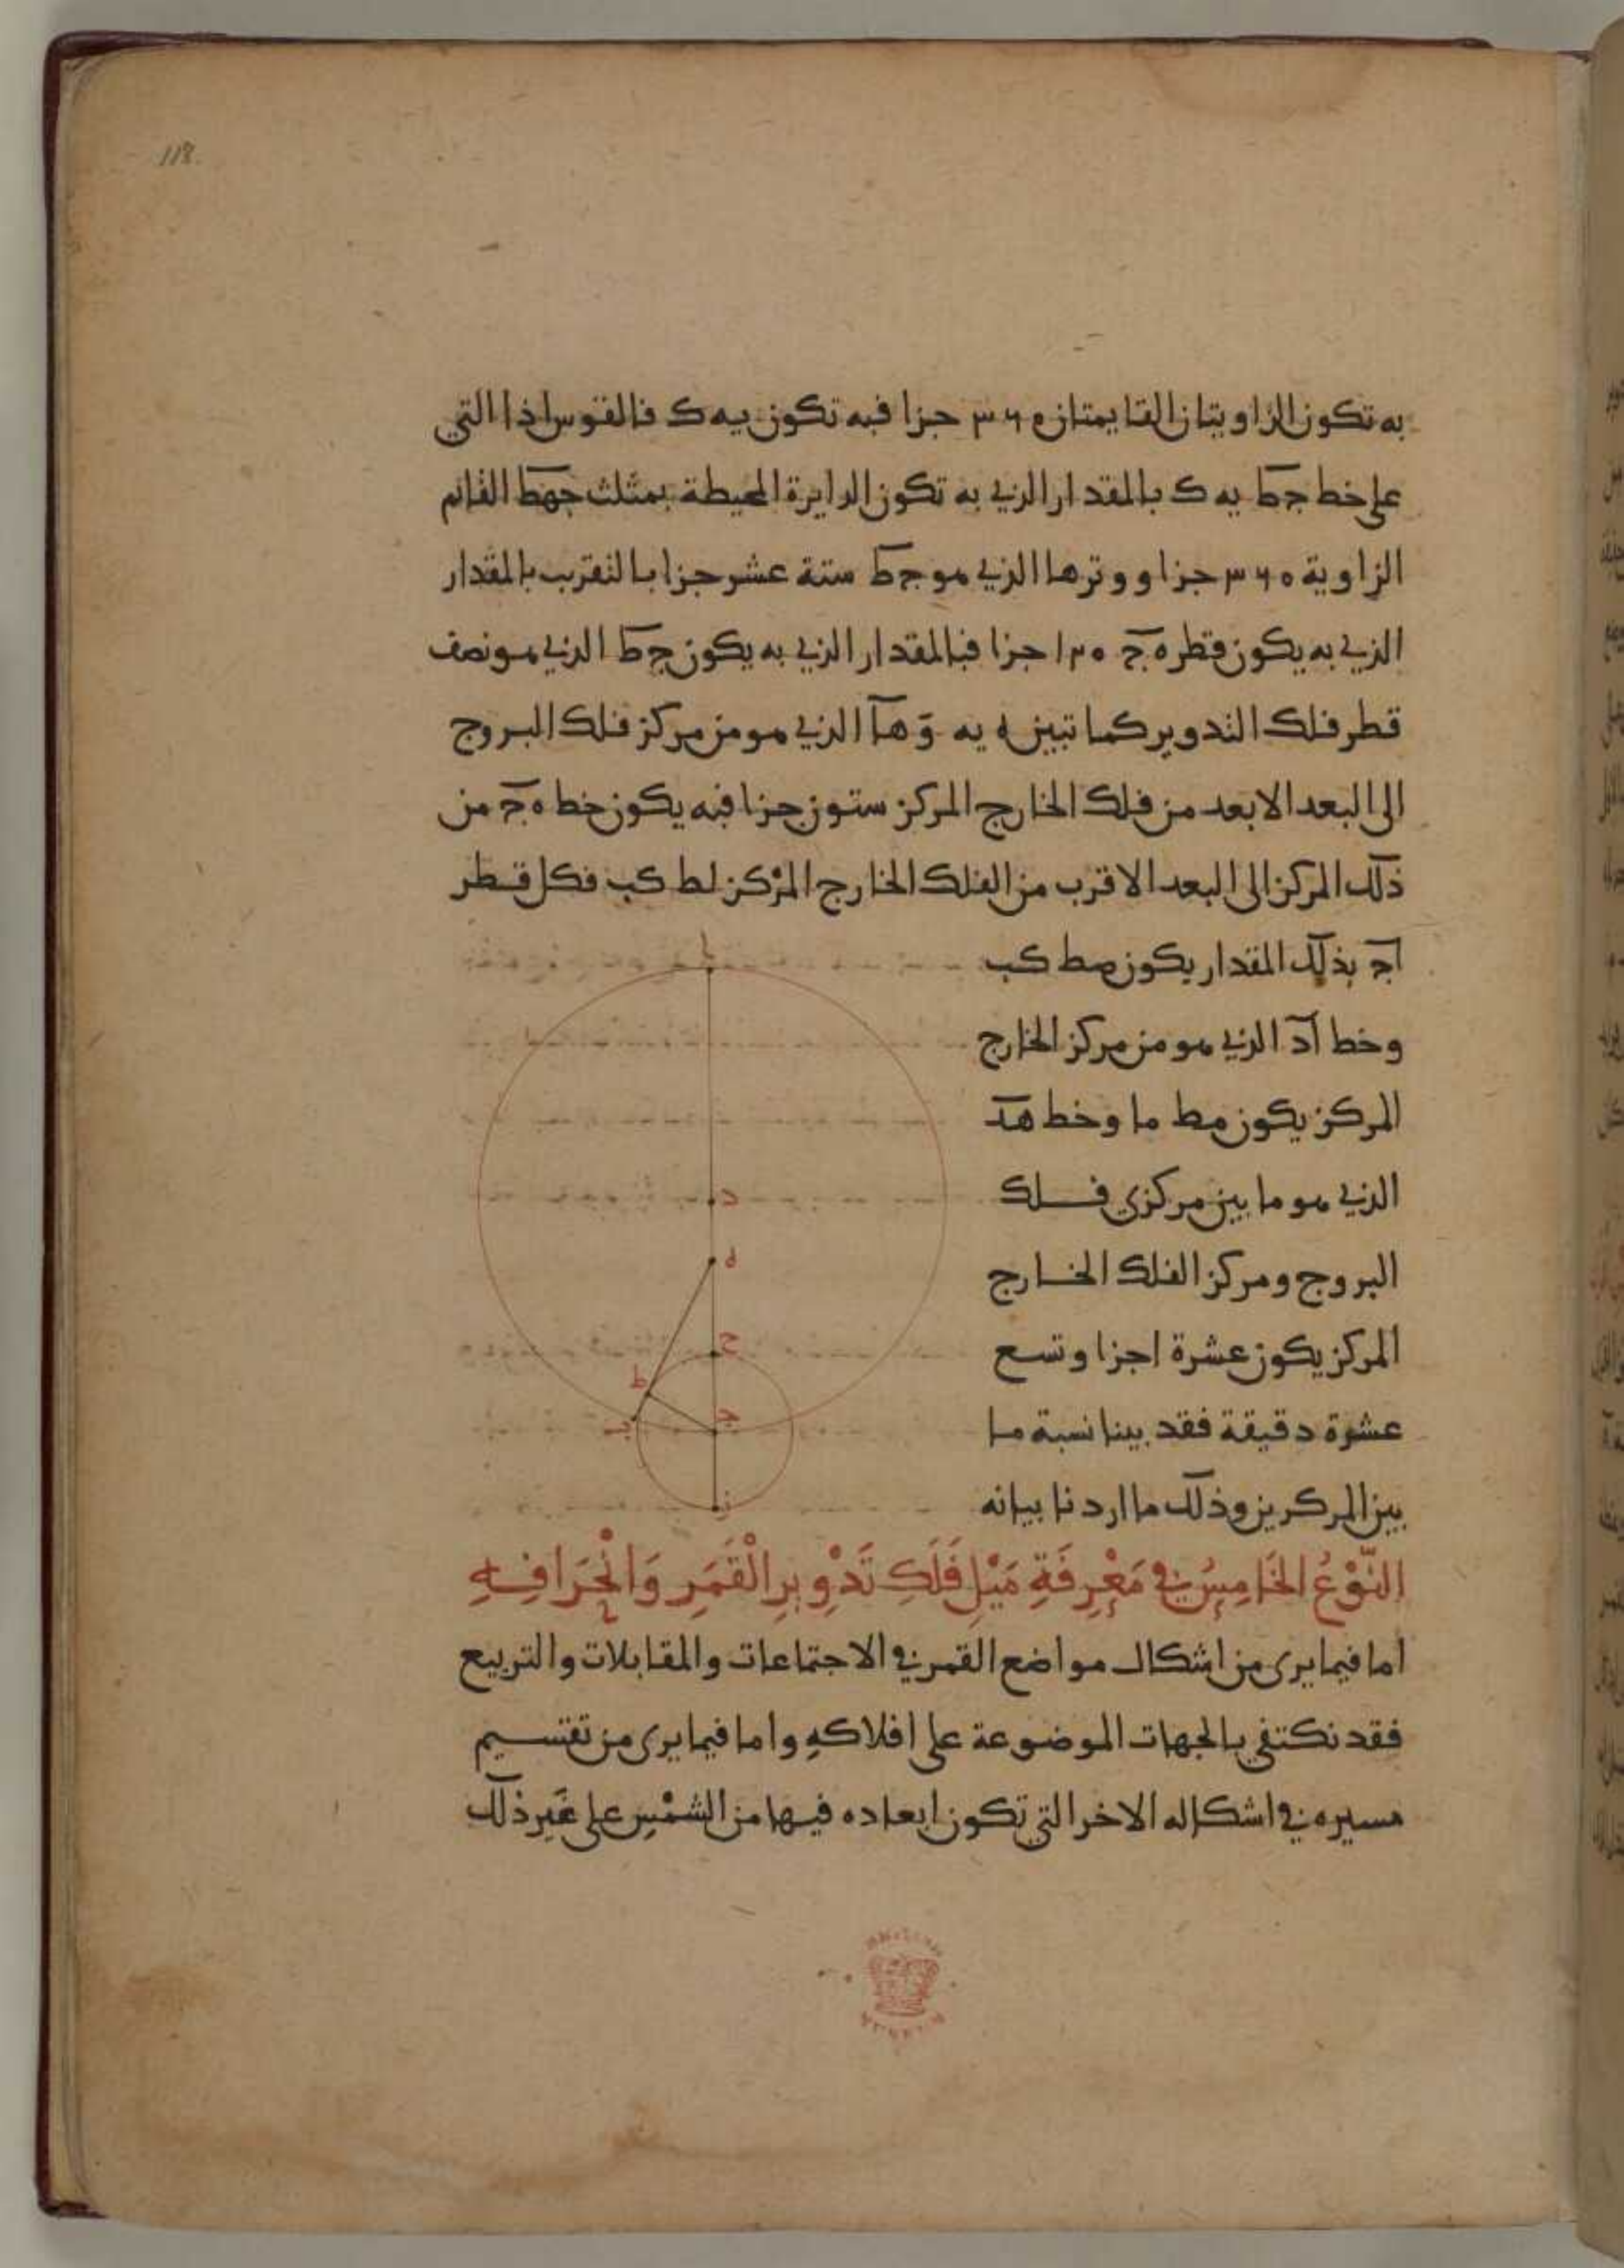 118.
به تكون الزاويتان القايمتان ٣٦٠ جزا فبه تكون يه ك فالقوس اذا التي
على خط جط يه ك بالمقدار الذي به تكون الدايرة المحيطة بمثلث جهط القائم
الزاوية ٣٦٠ جزا ووترها الذي هو جط ستة عشر جزا بالتقريب بالمقدار
الذي به يكون قطر هج ١٢٠ جزا فبالمقدار الذي به يكون جط الذي هو نصف
قطر فلك التدوير كما تبين ه يه وَ هآ الذي هو من مركز فلك البروج
الى البعد الابعد من فلك الخارج المركز ستون جزا فبه يكون خط هج من
ذلك المركز الى البعد الاقرب من الفلك الخارج المركز لط كب فكل قطر
آج بذلك المقدار يكون صط كب
وخط آد الذي هو من مركز الخارج
المركز يكون مط ما وخط هد
الذي هو ما بين مركزي فلك
البروج ومركز الفلك الخارج
المركز يكون عشرة اجزا وتسع
عشرة دقيقة فقد بينا نسبة ما
بين المركزين وذلك ما اردنا بيانه
ا
د
ه
ح
ط
ج
ب
ز
النَّوْعُ الخَامِسُ في مَعْرِفَةِ مَيْلِ فَلَكِ تَدْوِيرِ الْقَمَرِ وَانْحِرَافِهِ
اما فيما يرى من اشكال مواضع القمر في الاجتماعات والمقابلات والتربيع
فقد نكتفي بالجهات الموضوعة على افلاكهِ واما فيما يرى من تقسيم
مسيره في اشكاله الاخر التي تكون ابعاده فيها من الشمْسِ على غَيرِ ذلك
BRITISH
MUSEUM